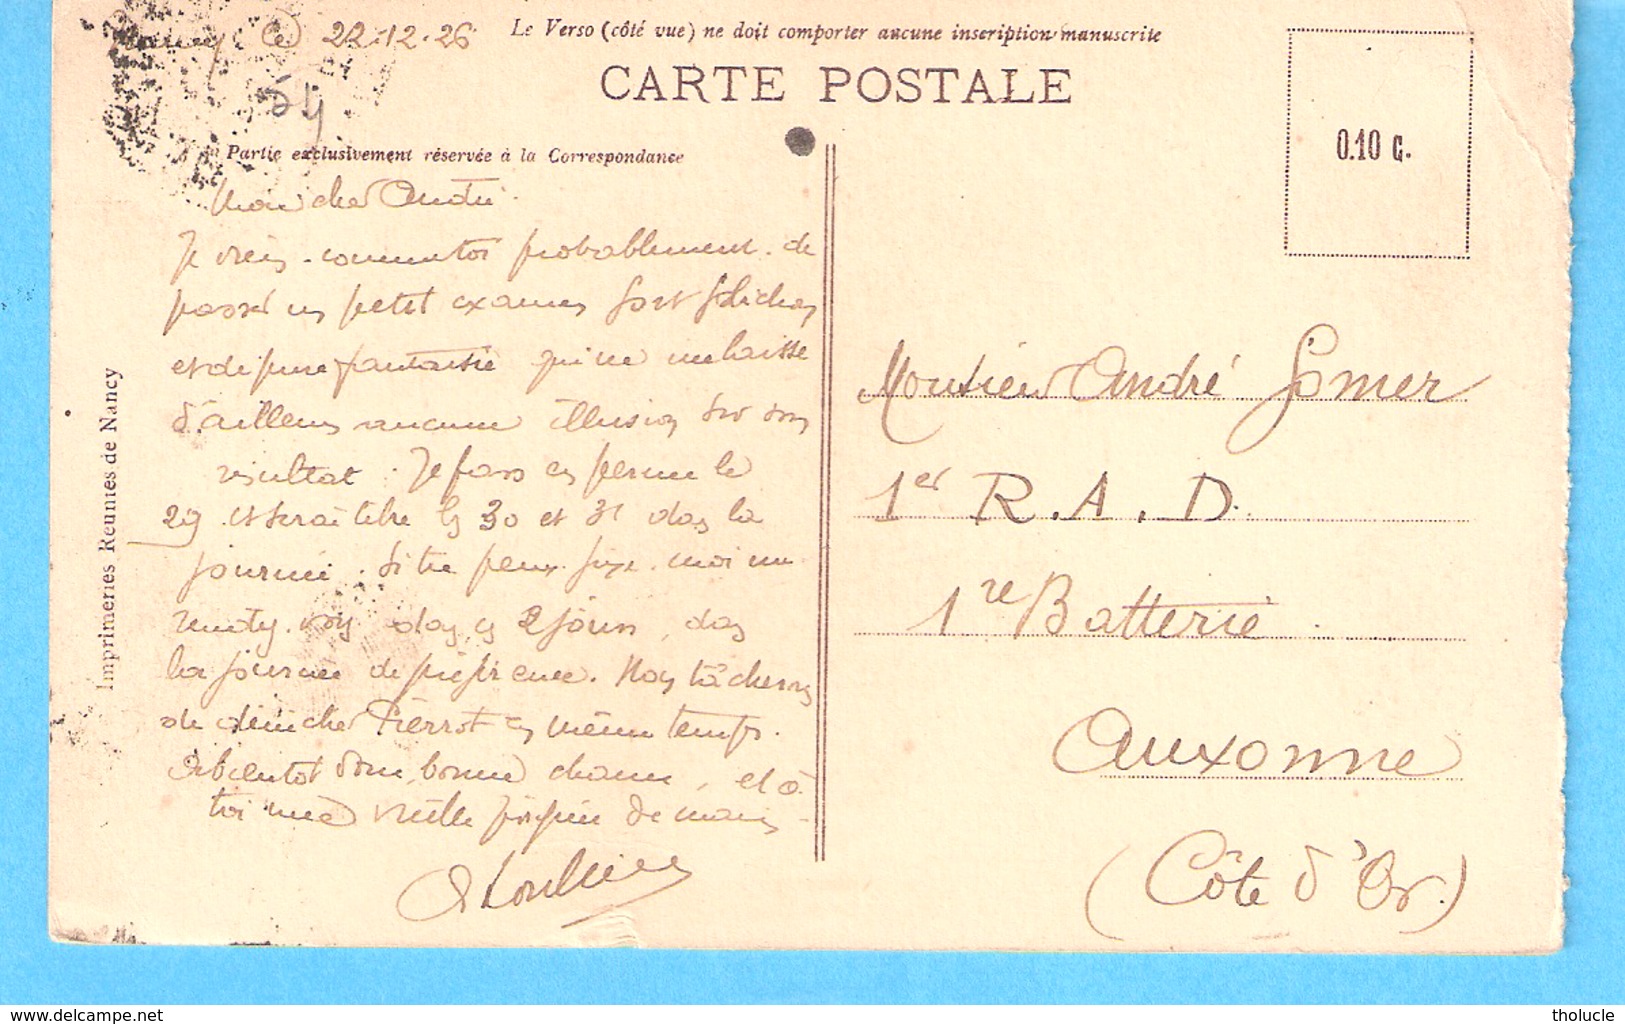 Nancy le 22-12-26
Le Verso (côté vue) ne doit comporter aucune inscription manuscrite
CARTE POSTALE
Partie exclusivement réservée à la Correspondance
0.10 c.
Mon cher André
Je viens, comme toi probablement, de
passer un petit examen fort
et de pure fantaisie qui ne me laisse
d'ailleurs aucune illusion sur son
résultat. Je pars en perme le
29 et serai libre les 30 et 31 dans la
journée. Si tu peux, fixe-moi un
rendez-vous dans ces 2 jours, dans
la journée de préférence. Nous tâcherons
de dénicher Pierrot en même temps.
A bientôt donc, bonne chance, et à
toi une vieille poignée de mains.
Monsieur André Gomer
1er R.A.D.
1re Batterie
Auxonne
(Côte d'Or)
Imprimeries Réunies de Nancy
www.delcampe.net
tholucle